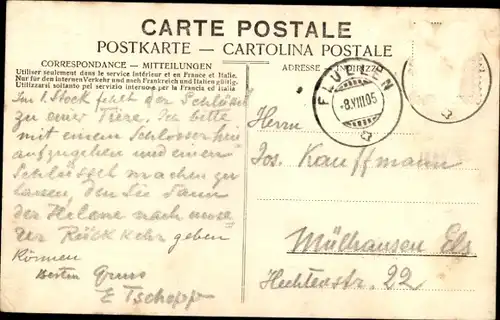 CARTE POSTALE
POSTKARTE — CARTOLINA POSTALE
CORRESPONDANCE - MITTEILUNGEN
ADRESSE - INDIRIZZO
Utiliser seulement dans le service intérieur et en France et Italie.
Nur für den internen Verkehr und nach Frankreich und Italien gültig.
Utilizzarsi soltanto pel servizio interno e per la Francia ed Italia
FLUELEN
-8.VIII.05
Im I Stock fehlt der Schlüssel
zu einer Türe. Ich bitte
mit einem Schlosser hin
aufzugehen und einen
Schlüssel machen zu
lassen, den Sie dann
der Helene nach unse
rer Rückkehr geben
können
besten Gruss
E Tschopp
Herrn
Jos. Kauffmann
Mülhausen Els
Hechtenstr. 22